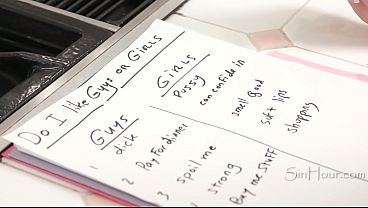 Do I like Guys or Girls
Guys
1 dick
2 Pay For dinner
3 spoil me
strong
Girls
pussy
can confide in
smell good
soft lips
shopping
Buy me stuff
SinHour.com